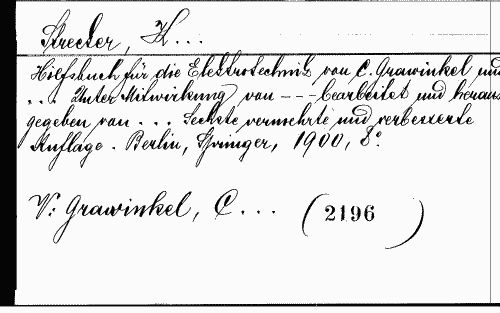 Strecker, K...
Hilfsbuch für die Elektrotechnik von C. Grawinkel und
... Unter Mitwirkung von --- bearbeitet und heraus
gegeben von ... Sechste vermehrte und verbesserte
Auflage. Berlin, Springer, 1900, 8°.
V: Grawinkel, C... (2196)